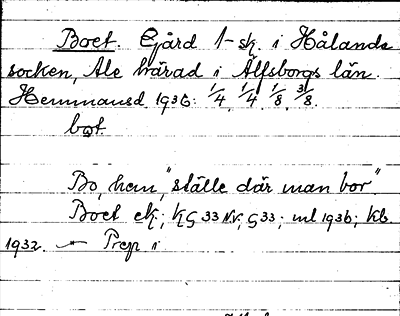 Boet. Gård 1-sk. i Hålanda
socken, Ale härad i Älfsborgs län.
Hemmansd 1936: 1/4, 1/4, 1/8, 3/8.
bot
Bo, hem, "ställe där man bor"
Boet ek; KG 33 Nr; G 33; ml 1936; kb.
1932. — Prep i